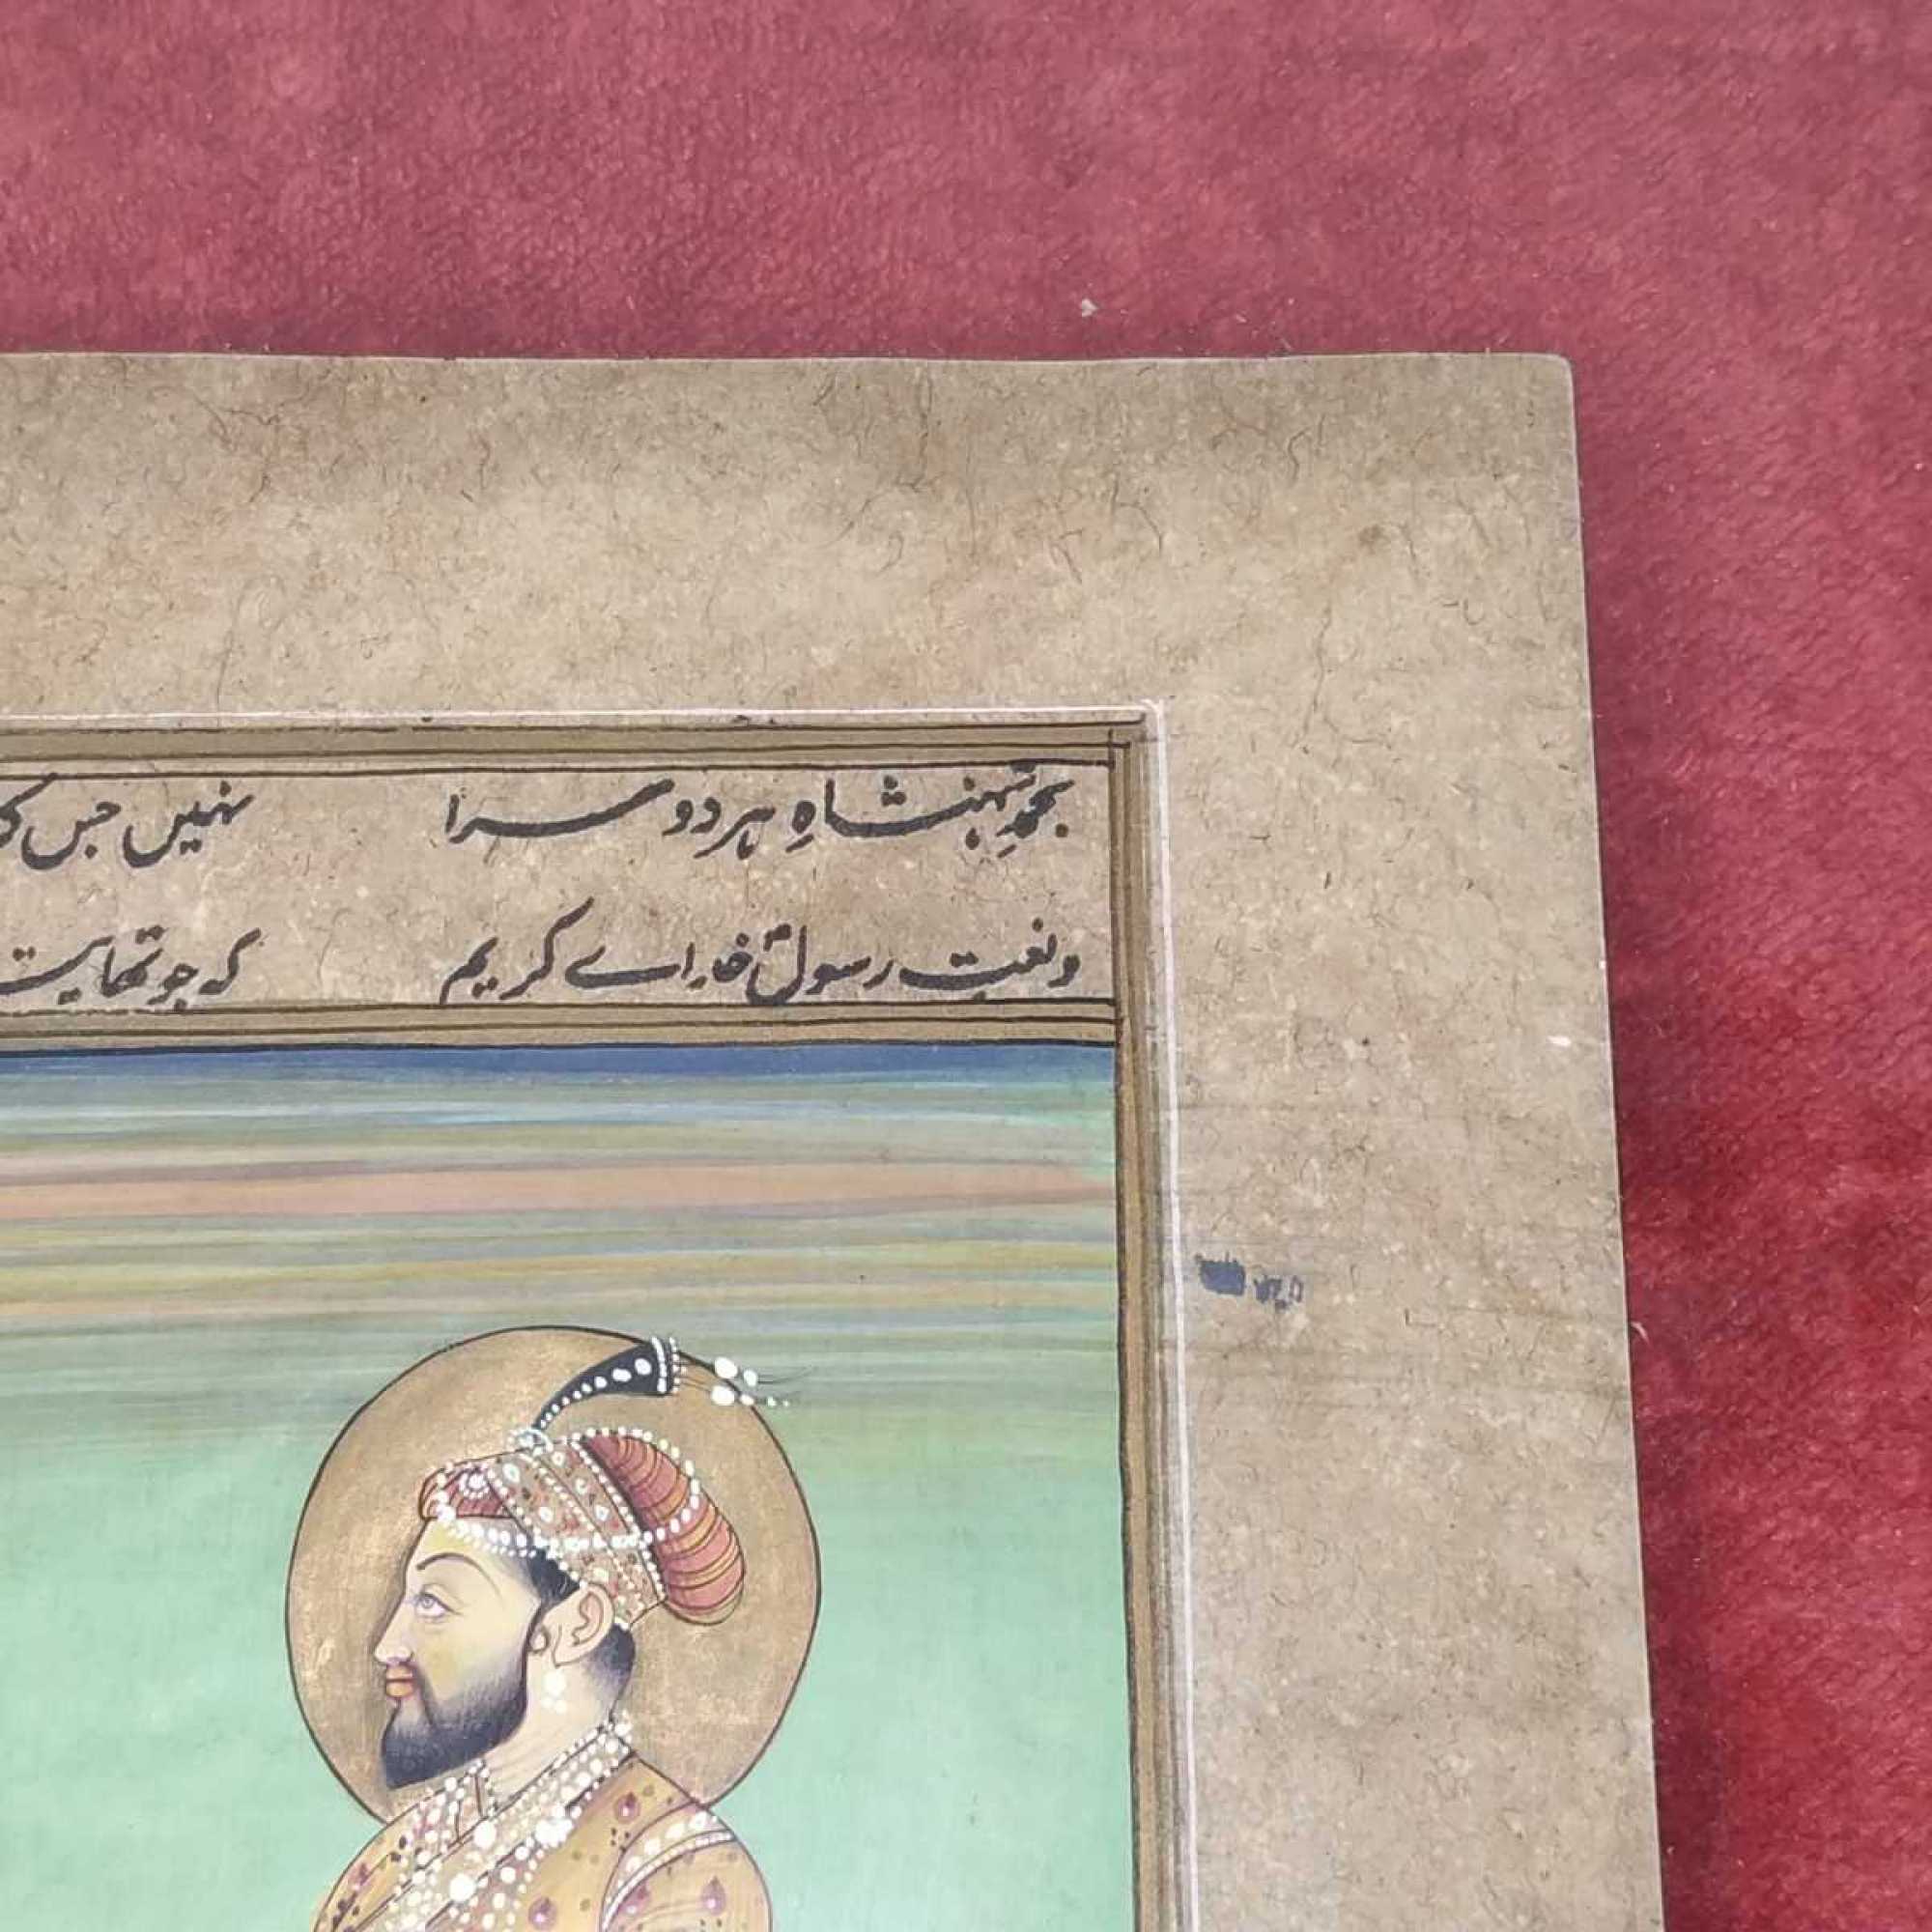 بحمدِ شہنشاہِ ہر دو سرا نہیں جس کو
و نعتِ رسولؐ خداے کریم کہ جو تھا یت